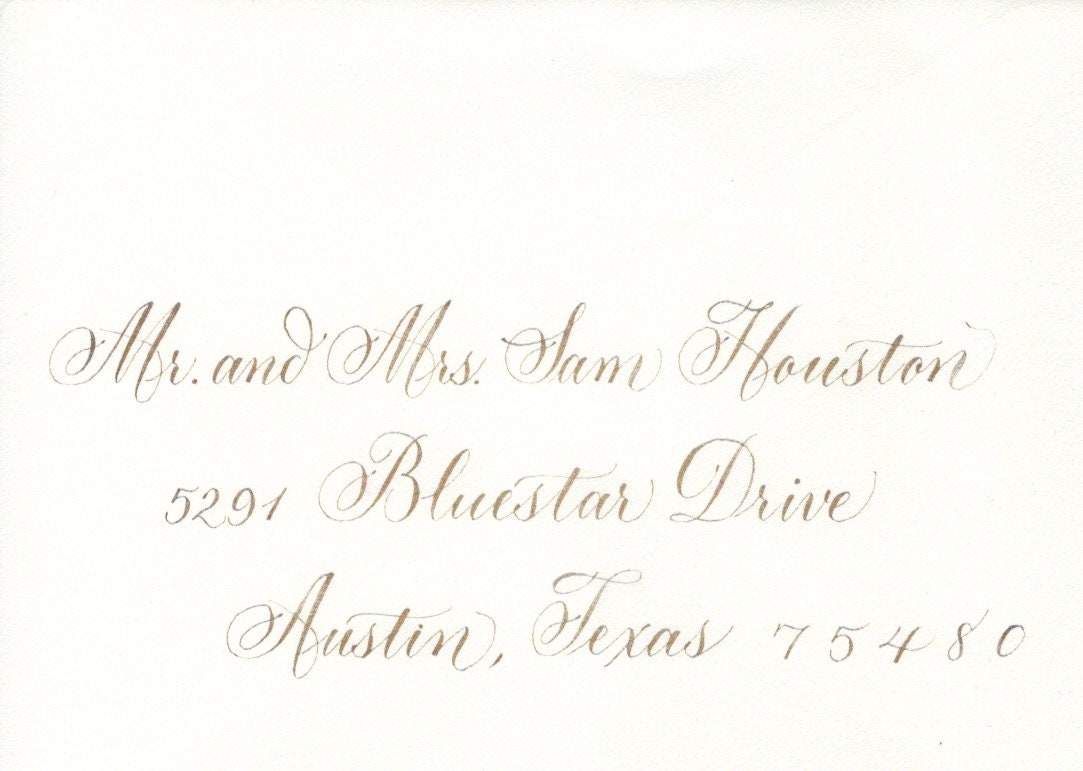 Mr. and Mrs. Sam Houston
5291 Bluestar Drive
Austin, Texas 75480